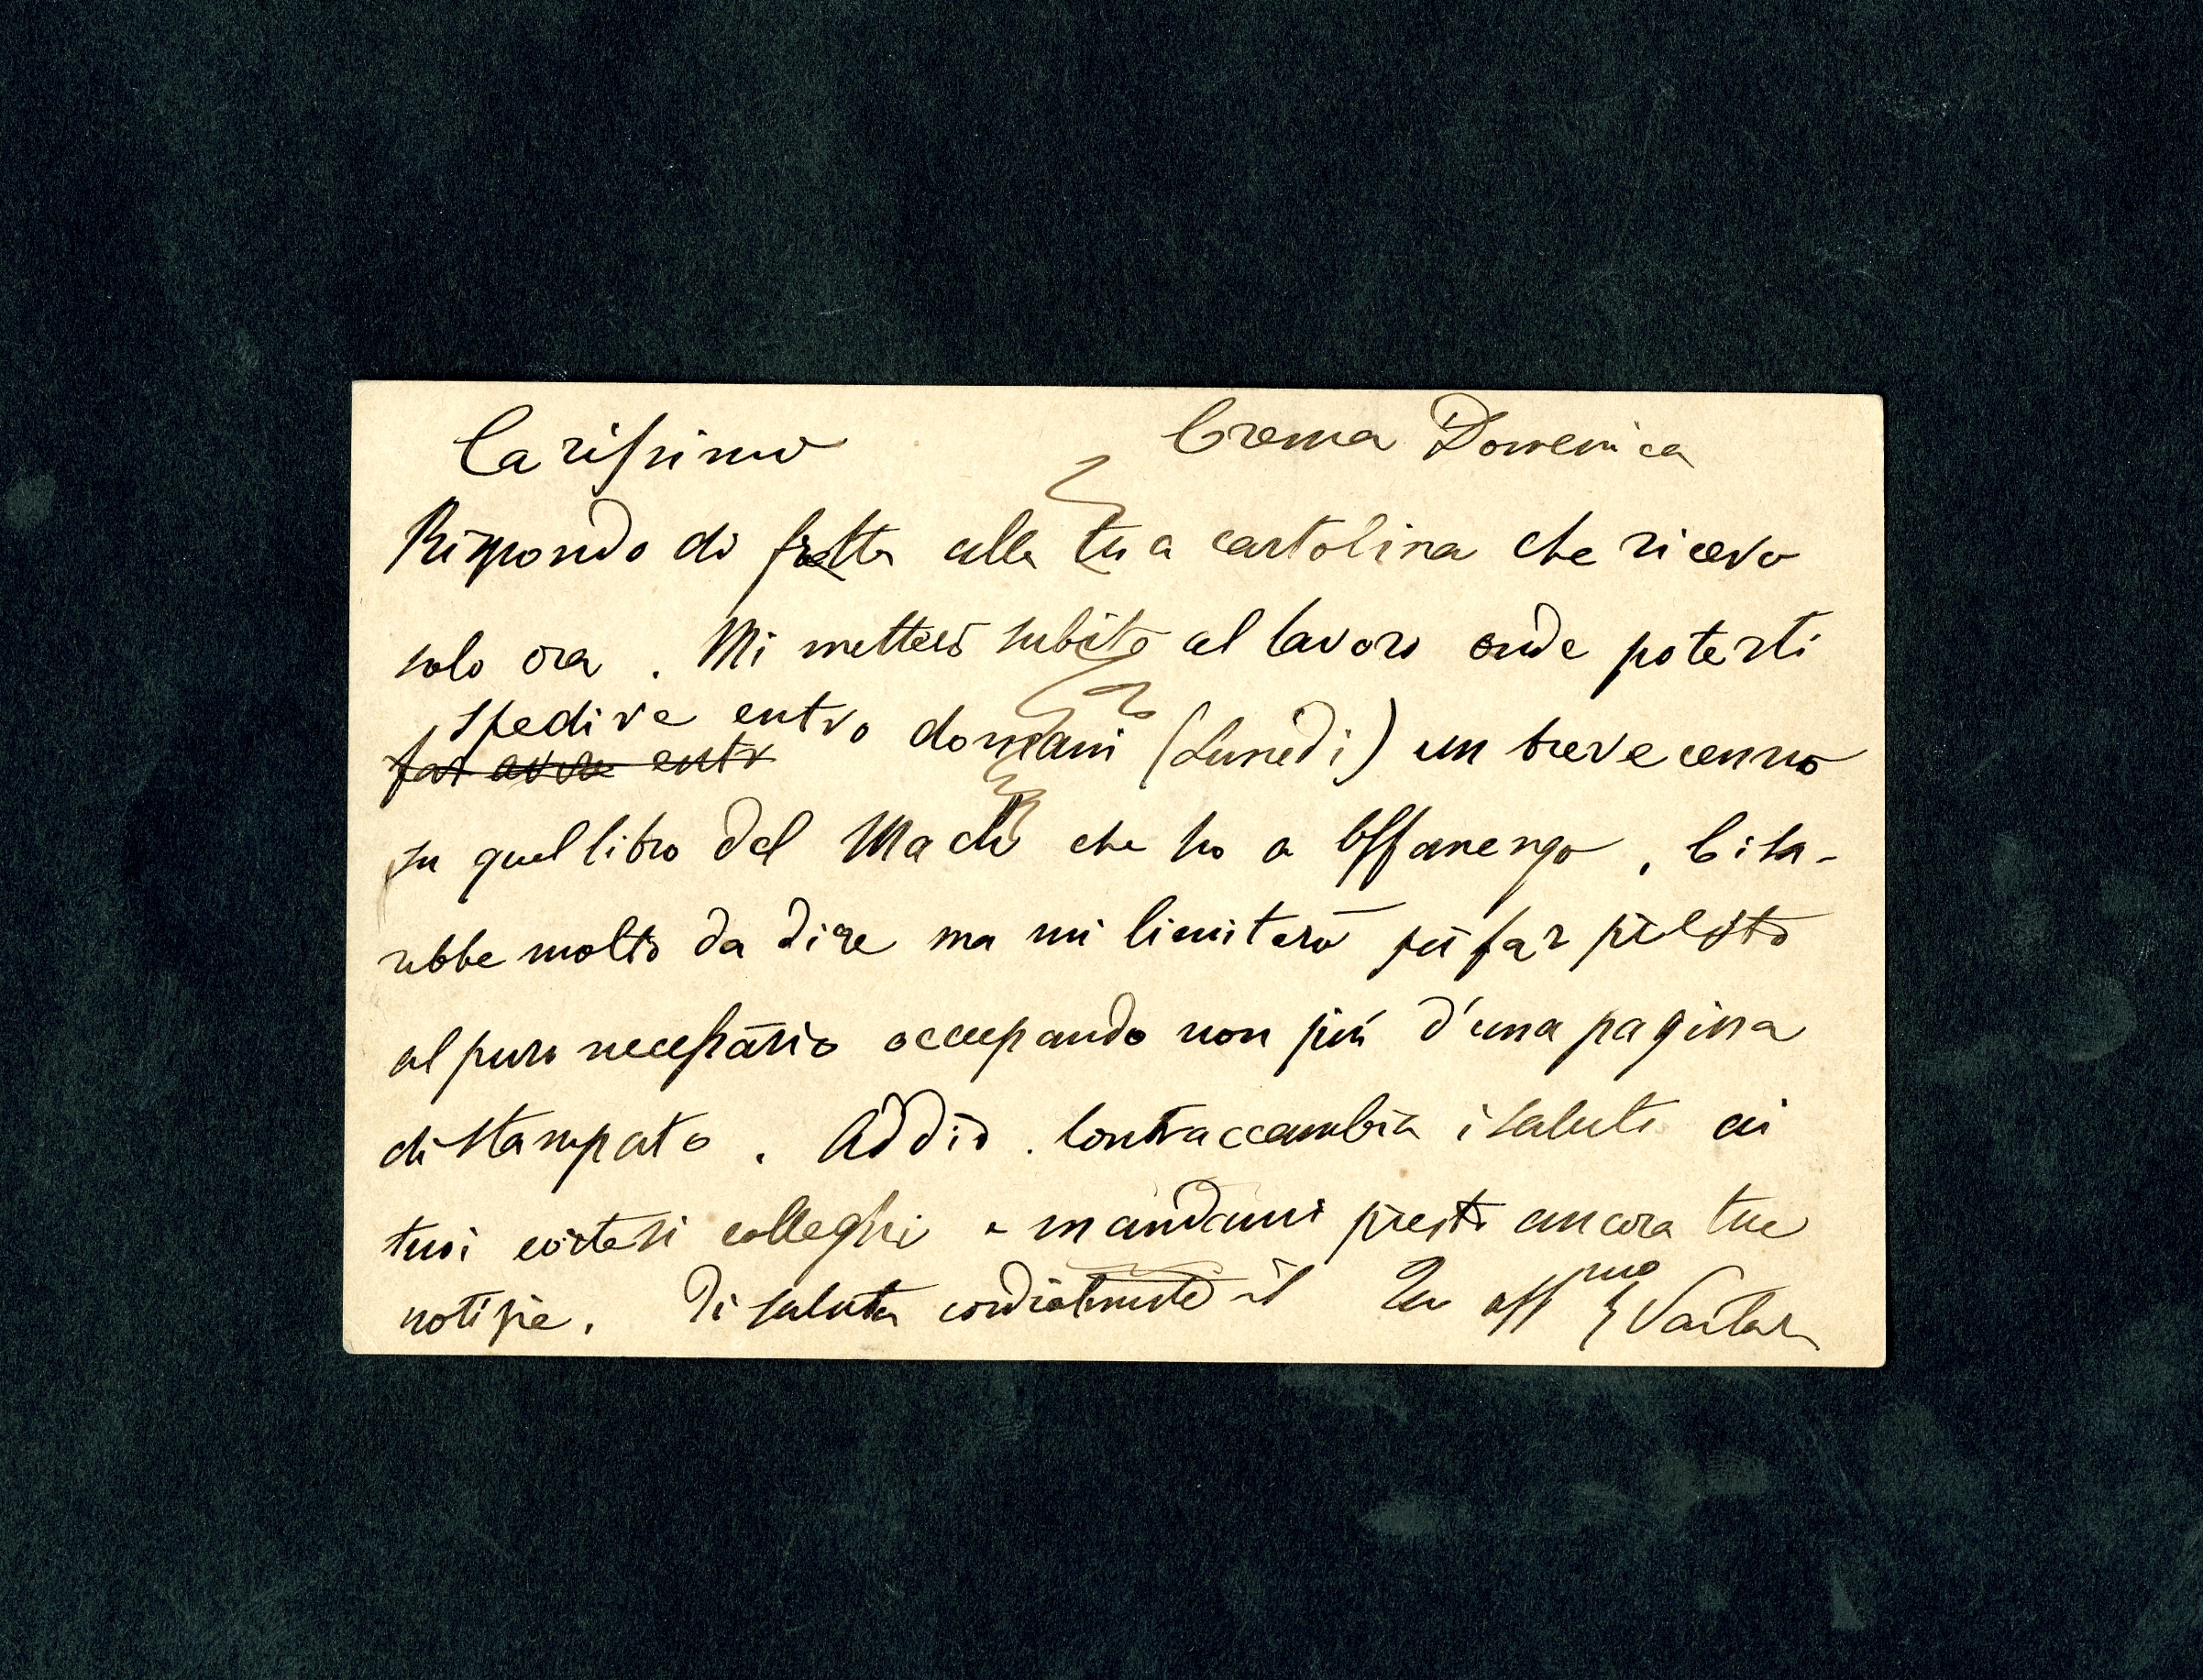 Carissimo Crema Domenica
Rispondo di fretta alla tua cartolina che ricevo
solo ora. Mi metterò subito al lavoro onde poterti
spedire entro domani (Lunedì) un breve cenno
far avere entr
su quel libro del Mach che ho a Offanengo. Ci sa-
rebbe molto da dire ma mi limiterò per far presto
al puro necessario occupando non più d'una pagina
di stampato. Addio. Contraccambia i saluti ai
tuoi cortesi colleghi e mandami presto ancora tue
notizie. Ti saluta cordialmente il Tuo affmo G Vailati